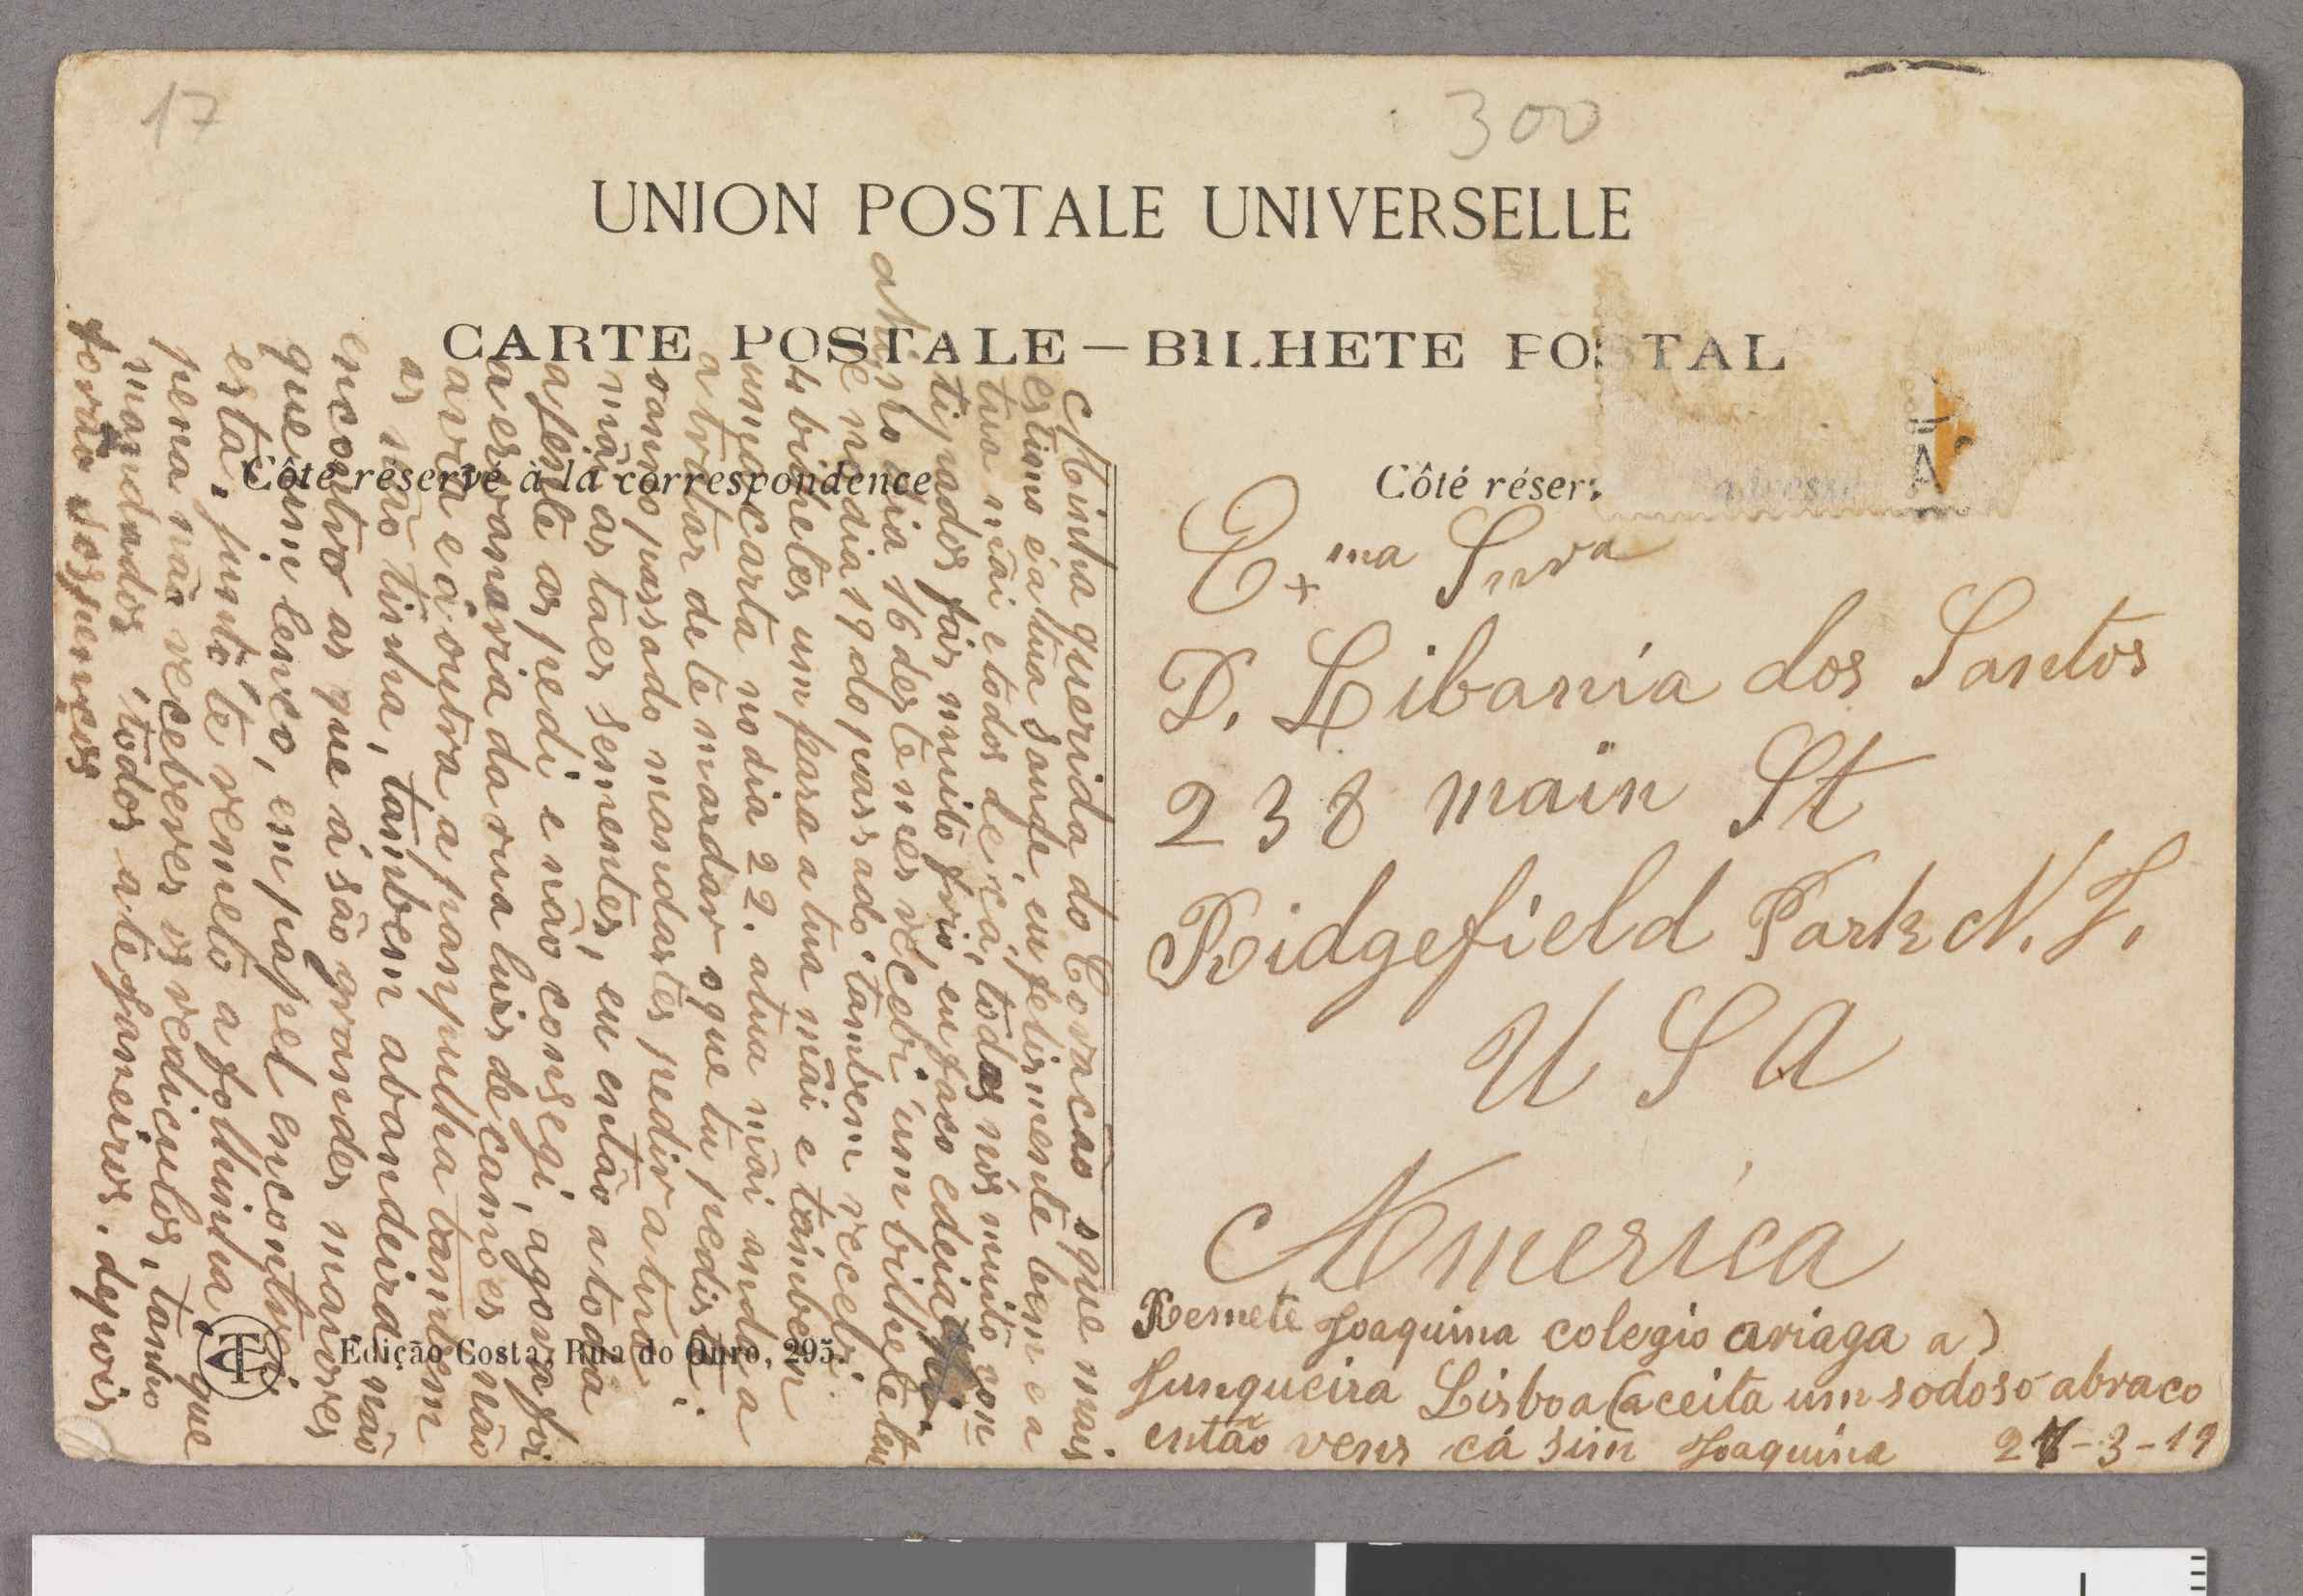 17
300
UNION POSTALE UNIVERSELLE
CARTE POSTALE — BILHETE POSTAL
Côté réservé à la correspondence
Côté réser
Minha querida do Coracão o que mais
estimo é a tua saude eu felismente bem e a
tua mãi e todos dé cá, todas nós muito con
tipados fás muito frio, eu faso
ahinho dia 16 deste mes recebi um bilhete teu
e no dia 19 do passado tambem recebi
4 bihetes um para a tua mãi e tambem
uma carta no dia 22. a tua mãi anda a
a tratar de te mardar o que tu pediste
oanno passado mandastes pedir a tua
mãi as taes sementes, eu então a toda
a jente as pedi e não consegi, agora foi
a ervanaria da rua luis de camões não
avia e á outra a panpulha tamtem
as não tinha, tambem abandeira não
encontro as que á são grandes mares
que um lenco, em papel encontrei
esta, junto te remeto a folhinha que
pena não receberes os rediculos, tanho
mandados, todos ate janeiros. depois
forão sospencos
Exma Snra
D. Libania dos Santos
238 main St
Ridgefield Park N. J.
U S A
America
Remete Joaquina colegio ariaga a)
Junqueira Lisboa (aceita um sodoso abraco
então vens cá sim Joaquina 27-3-19
Edição Costa, Rua do Ouro, 295.